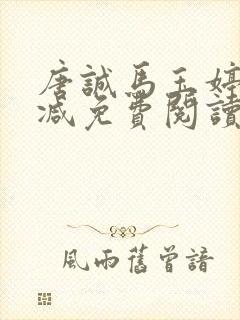 唐誠馬玉婷
減免費閱讀
風雨舊曾諳